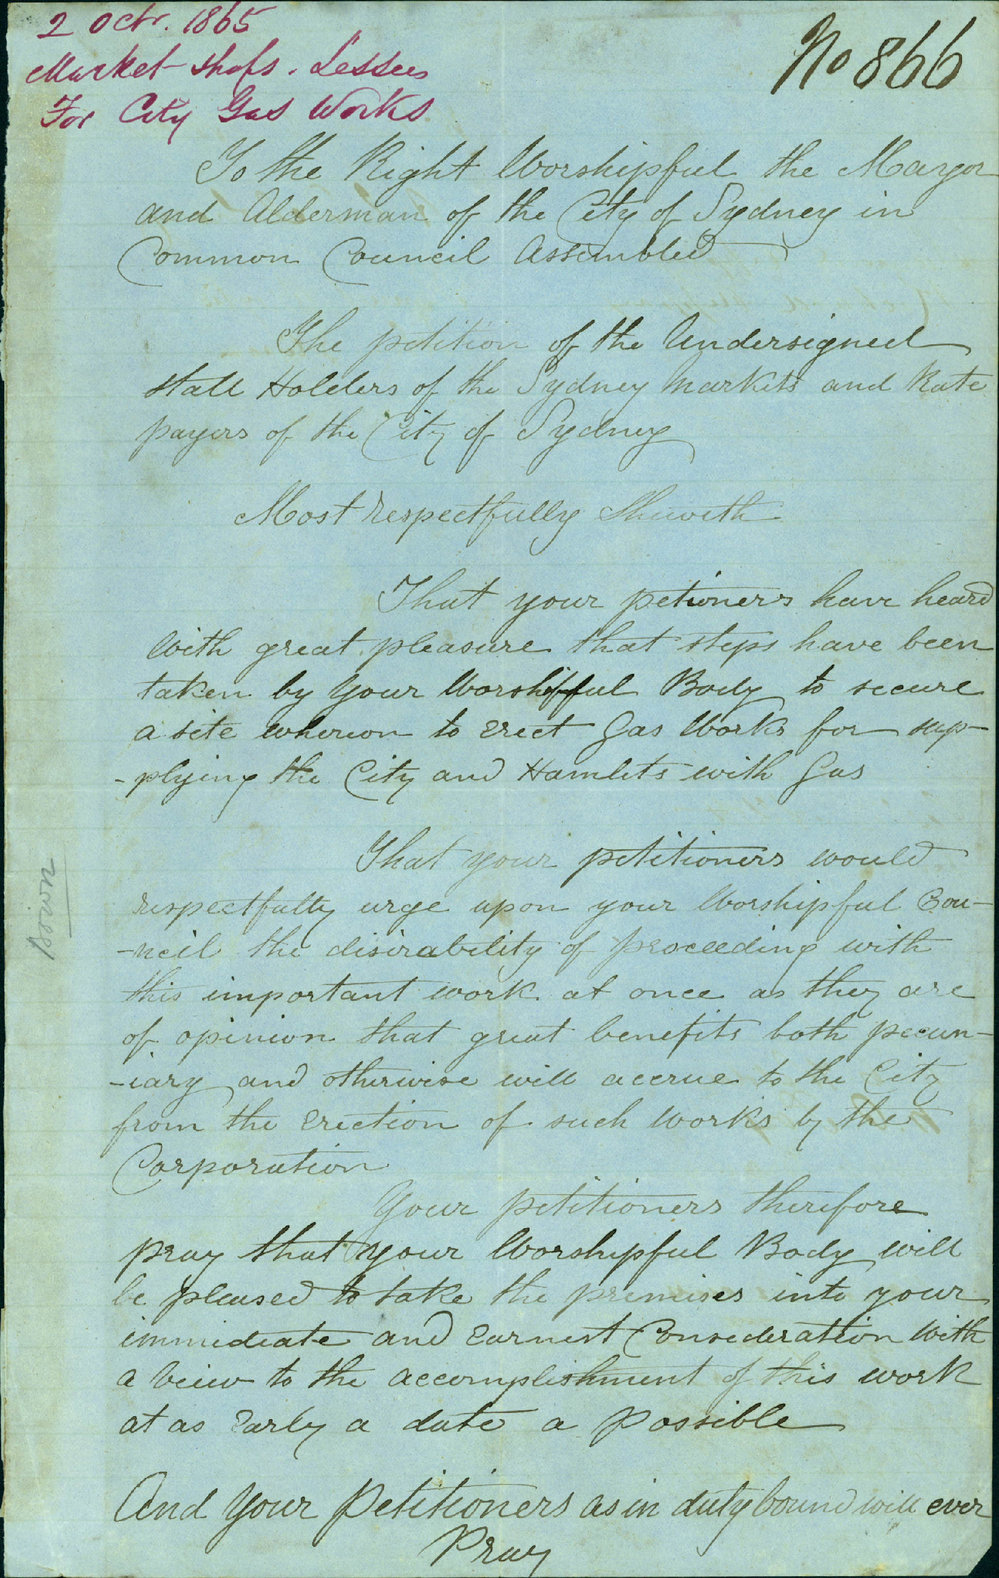 2 Octr. 1865
Market Shops. Lessees
For City Gas Works
No 866
To the Right Worshipful the Mayor
and Alderman of the City of Sydney in
Common Council Assembled
The petition of the Undersigned
Stall Holders of the Sydney Markets and Rate
payers of the City of Sydney
Most respectfully Sheweth
That your petioners have heard
with great pleasure that steps have been
taken by your Worshipful Body to secure
a site whereon to erect Gas Works for sup-
-plying the City and Hamlets with Gas
That your petitioners would
respectfully urge upon your Worshipful Cou-
-ncil the disirability of proceeding with
this important work at once as they are
of opinion that great benefits both pecun-
-iary and otherwise will accrue to the City
from the erection of such works by the
Corporation
Your petitioners therefore
pray that your Worshipful Body will
be pleased to take the premises into your
immediate and earnest Consideration with
a view to the accomplishment of this work
at as Early a date a possible
And your Petitioners as in duty bound will ever
Pray